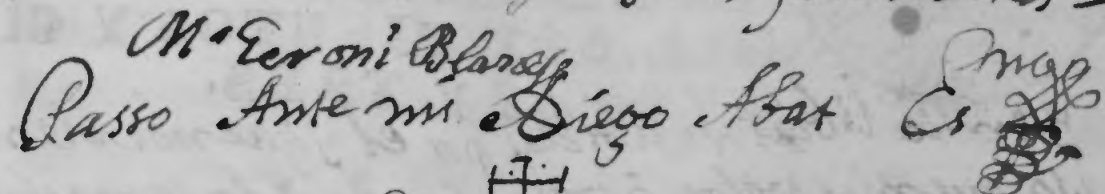 Mº Geroni Blanes
Passo Ante mi Diego Abat Es